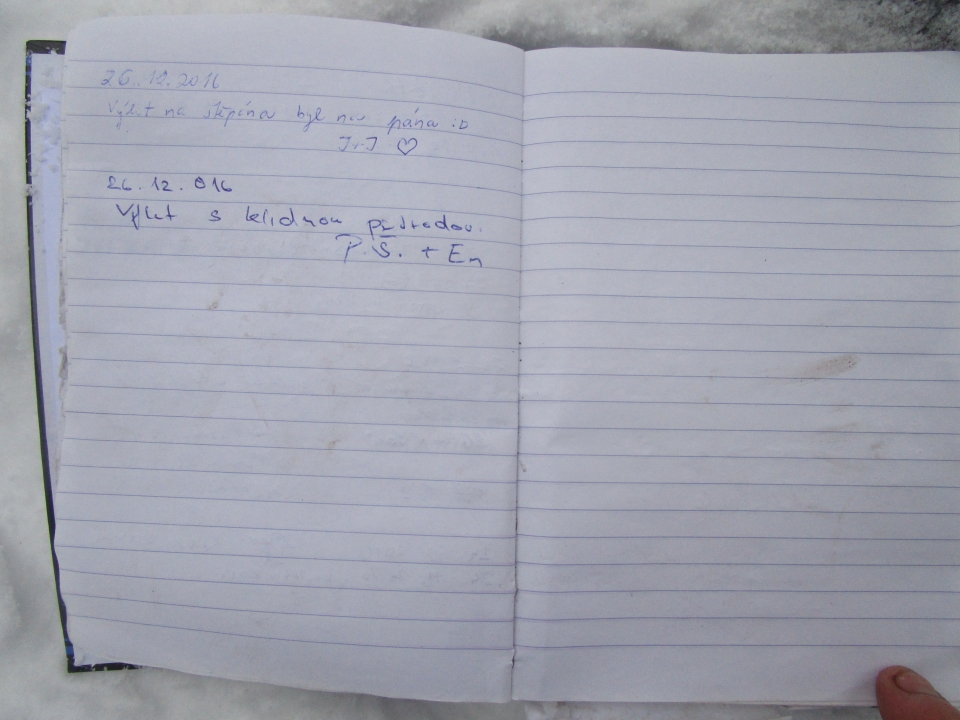 26.12.2016
Výlet na štěpána byl na pána :D
J+J ♡
26.12.016
Výlet s klidnou přírodou.
P.S. + En